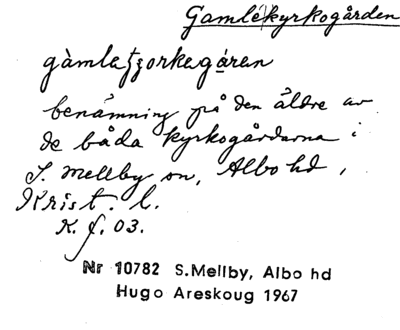 Gamle|kyrkogården
gàmleʈʒorkegáren
benämning på den äldre av
de båda kyrkogårdarna i
S. Mellby sn, Albo hd,
Krist. l.
K. f. 03.
Nr 10782 S.Mellby, Albo hd
Hugo Areskoug 1967